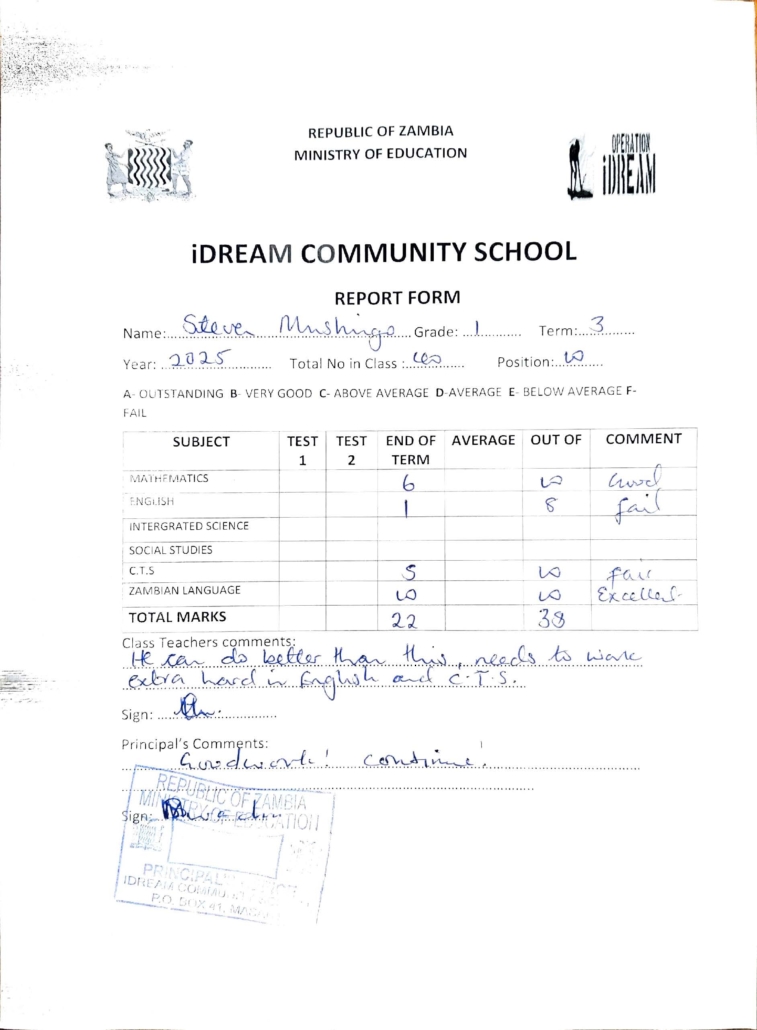 REPUBLIC OF ZAMBIA
MINISTRY OF EDUCATION
OPERATION
iDREAM
iDREAM COMMUNITY SCHOOL
REPORT FORM
Name: Steven Mushingo Grade: 1 Term: 3
Year: 2025 Total No in Class : Position: 10
A- OUTSTANDING B- VERY GOOD C- ABOVE AVERAGE D-AVERAGE E- BELOW AVERAGE F-
FAIL
SUBJECT TEST 1 TEST 2 END OF TERM AVERAGE OUT OF COMMENT
MATHEMATICS 6 10 Good
ENGLISH 1 8 fail
INTERGRATED SCIENCE
SOCIAL STUDIES
C.T.S 5 10 fair
ZAMBIAN LANGUAGE 10 10 Excellent
TOTAL MARKS 22 38
Class Teachers comments:
He can do better than this, needs to work
extra hard in English and C.T.S.
Sign:
Principal's Comments:
Goodwork! continue.
REPUBLIC OF ZAMBIA
MINISTRY OF EDUCATION
Sign:
PRINCIPAL
IDREAM
P.O. BOX 41,